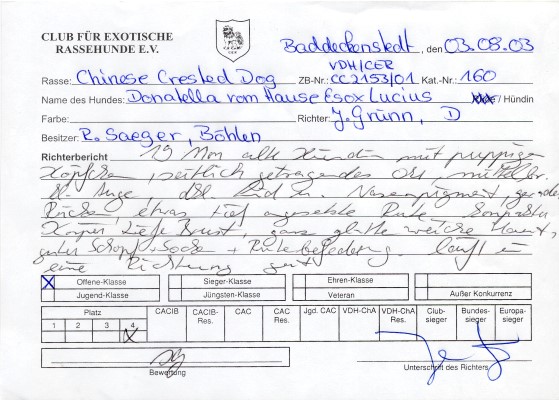 CLUB FÜR EXOTISCHE
RASSEHUNDE E.V.
Baddeckenstedt, den 03.08.03
VDH/CER
Rasse: Chinese Crested Dog ZB-Nr.: CC2153/01 Kat.-Nr.: 160
Name des Hundes: Donatella vom Hause Esox Lucius / Hündin
Farbe: Richter: J. Grünn, D
Besitzer: R. Saeger, Böhlen
Richterbericht 19 Mon alte Hündin mit puppigen
Köpfchen, seitlich getragenes Ohr, mittelbr.
Auge, Nasenpigment,
Rücken, etwas tief angesetzte Rute
Körper tiefe Brust, ganz glatte weiche Haut,
guter Schopf + Socken + Rutebefederung läuft in
eine Richtung gut
X Offene-Klasse Sieger-Klasse Ehren-Klasse
Jugend-Klasse Jüngsten-Klasse Veteran Außer Konkurrenz
Platz CACIB CACIB-Res. CAC CAC-Res. Jgd. CAC VDH-ChA VDH-ChA Res. Club-sieger Bundes-sieger Europa-sieger
1 2 3 4 X
sg
Bewertung Unterschrift des Richters